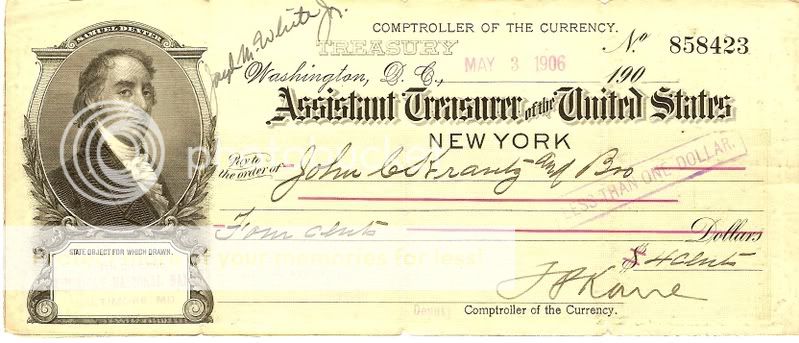 COMPTROLLER OF THE CURRENCY.
SAMUEL DEXTER
Joseph M. White Jr.
TREASURY
No 858423
Washington, D. C., MAY 3 1906 190
Assistant Treasurer of the United States
NEW YORK
Pay to
the order of John C. Frantz and Bro
LESS THAN ONE DOLLAR.
Four cents Dollars
STATE OBJECT FOR WHICH DRAWN.
$ 4 cents
of your memories for less!
photobucket
T P Kane
Deputy Comptroller of the Currency.